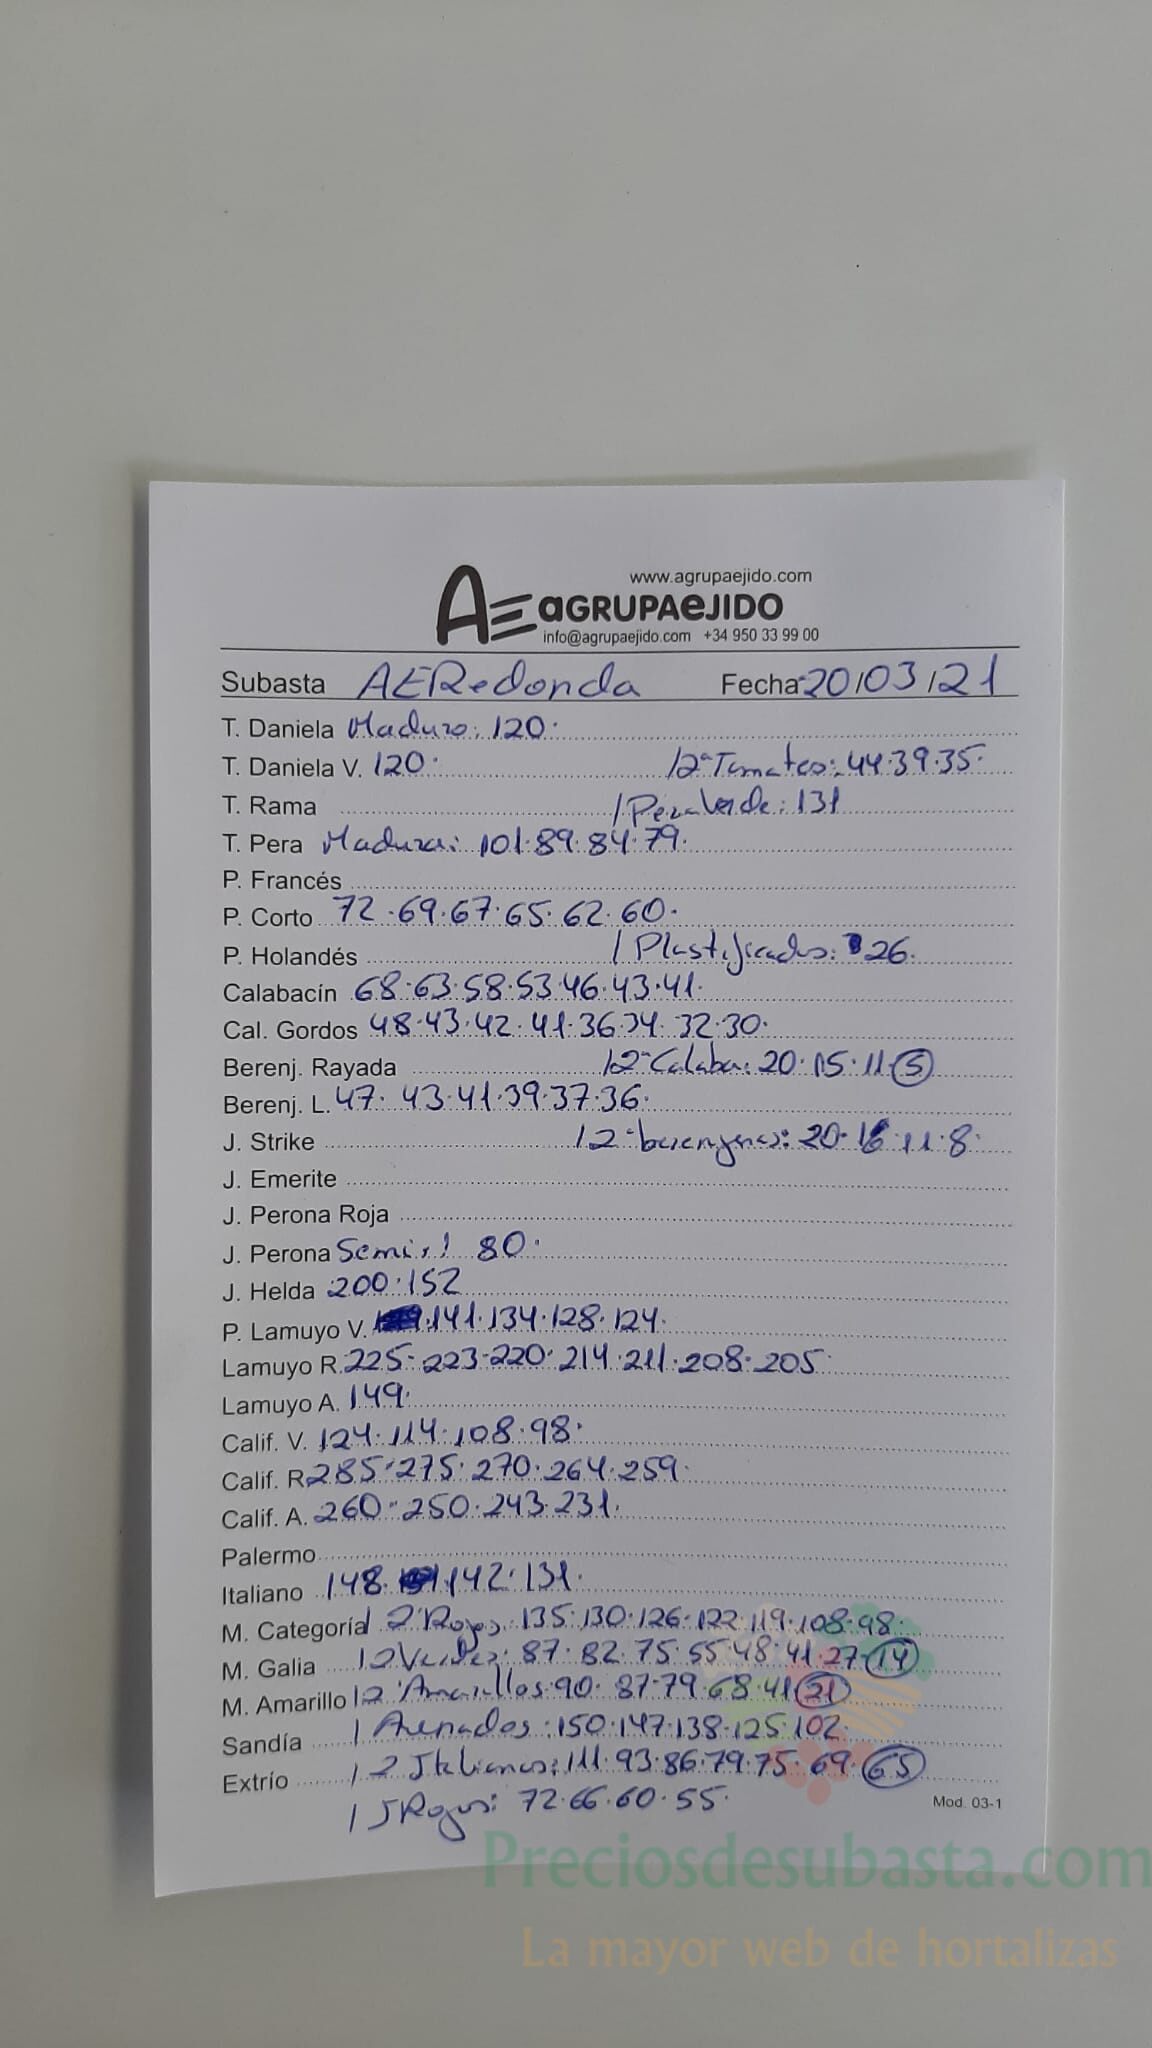 www.agrupaejido.com
AE aGRUPAeJIDO
info@agrupaejido.com +34 950 33 99 00
Subasta AERedonda Fecha 20/03/21
T. Daniela Maduro: 120.
T. Daniela V. 120. /2ª Tomates: 44.39.35.
T. Rama / Pera Verde: 131
T. Pera Madura: 101.89.84.79.
P. Francés
P. Corto 72.69.67.65.62.60.
P. Holandés / Plastificados: 26.
Calabacín 68.63.58.53.46.43.41.
Cal. Gordos 48.43.42.41.36.34.32.30.
Berenj. Rayada /2ª Calaba: 20.15.11.5
Berenj. L. 47.43.41.39.37.36.
J. Strike /2ª berenjenas: 20.16.11.8.
J. Emerite
J. Perona Roja
J. Perona Semi 80.
J. Helda 200.152
P. Lamuyo V. 141.134.128.124.
Lamuyo R. 225-223-220.214.211.208.205.
Lamuyo A. 149.
Calif. V. 124.114.108.98.
Calif. R 285.275.270.264.259.
Calif. A. 260-250.243.231.
Palermo
Italiano 148. 142.131.
M. Categoría / 2ª Rojos 135.130.126.122.119.108.98.
M. Galia /2 Verdes: 87.82.75.55.48.41.27-14
M. Amarillo /2 Amarillos 90.87.79.68.41.21
Sandía / Asurados: 150.147.138.125.102.
Extrío / 2 Italianos: 111.93.86.79.75.69.65
/ J Rojos: 72.66.60.55.
Mod. 03-1
Preciosdesubasta.com
La mayor web de hortalizas